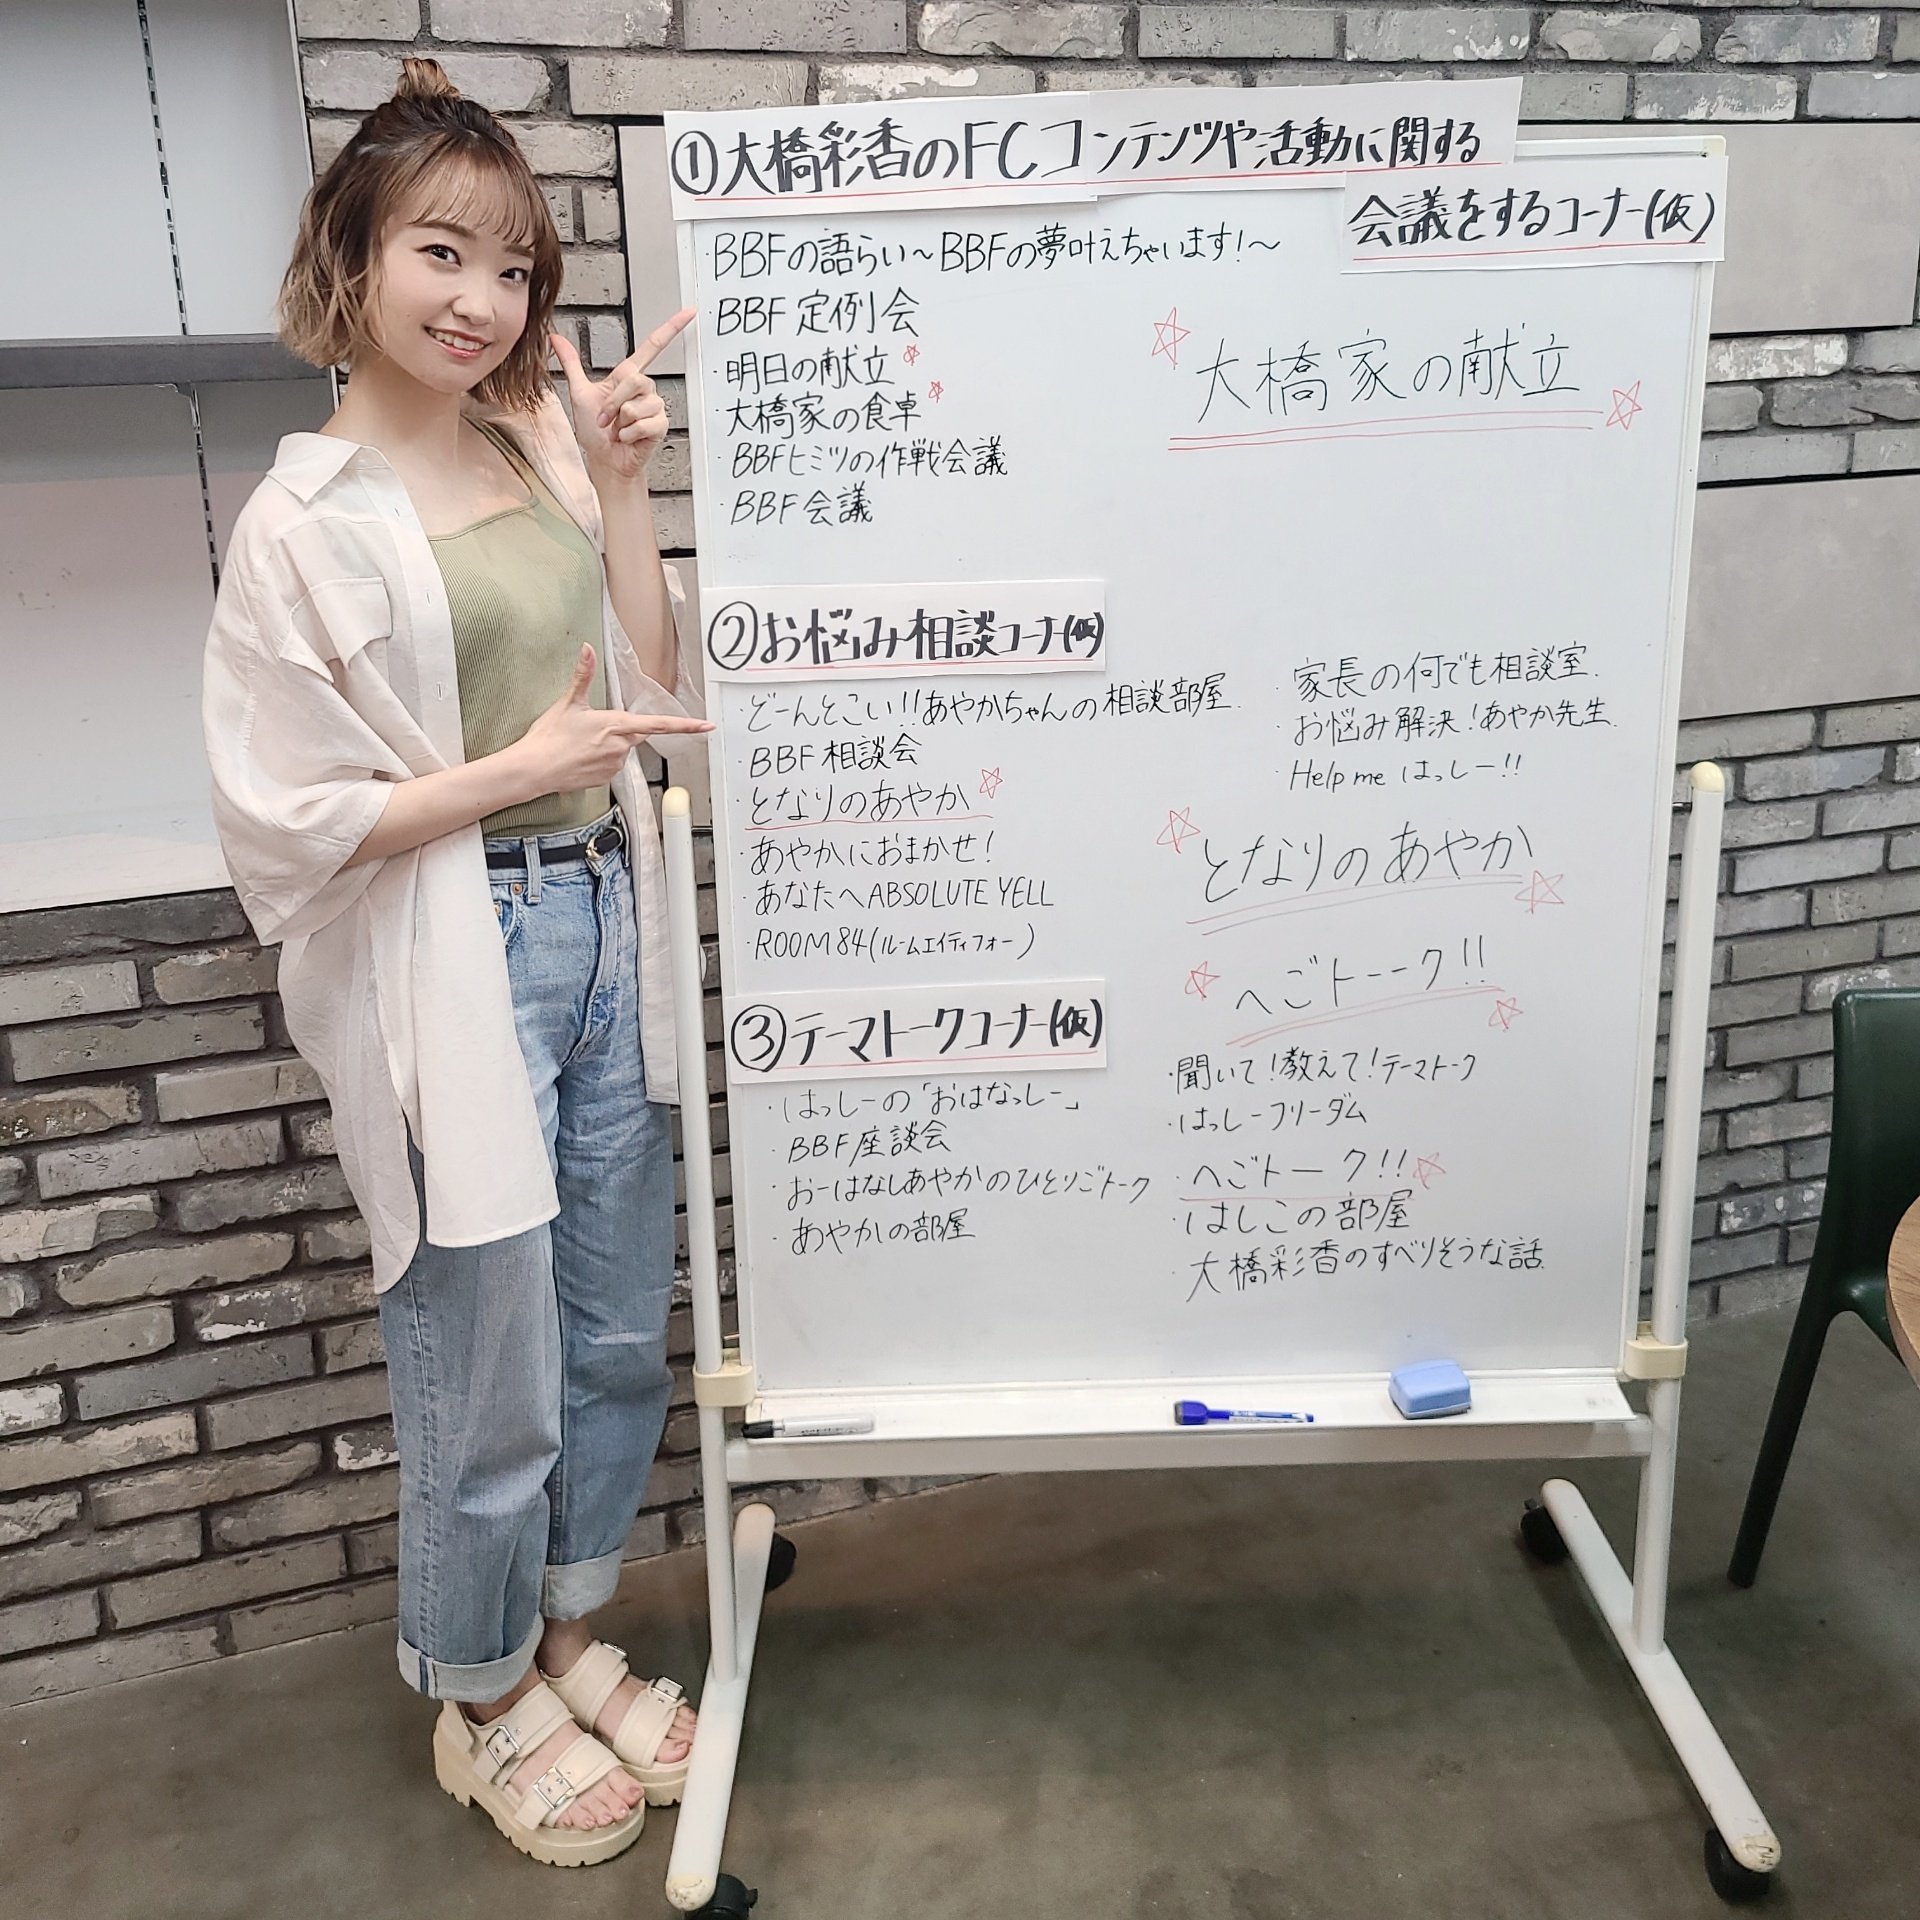 ①大橋彩香のFCコンテンツや活動に関する
会議をするコーナー(仮)
・BBFの語らい～BBFの夢叶えちゃいます!～
・BBF定例会
・明日の献立☆
・大橋家の食卓☆
・BBFヒミツの作戦会議
・BBF会議
☆大橋家の献立☆
②お悩み相談コーナー(仮)
・どーんとこい!!あやかちゃんの相談部屋.
・BBF相談会
・となりのあやか☆
・あやかにおまかせ!
・あなたへABSOLUTE YELL
・ROOM84(ルームエイティフォー)
・家長の何でも相談室.
・お悩み解決!あやか先生.
・Help me はっしー!!
☆となりのあやか☆
☆へごトーーク!!☆
③テーマトークコーナー(仮)
・はっしーの「おはなっしー」
・BBF座談会
・おーはなしあやかのひとりごトーク
・あやかの部屋
・聞いて!教えて!テーマトーク
・はっしーフリーダム
・へごトーーク!!☆
・はしこの部屋
・大橋彩香のすべりそうな話.